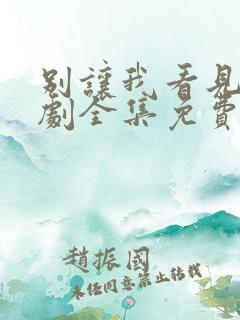 別讓我看見
劇全集免費
趙振國
未任同意禁止轉載